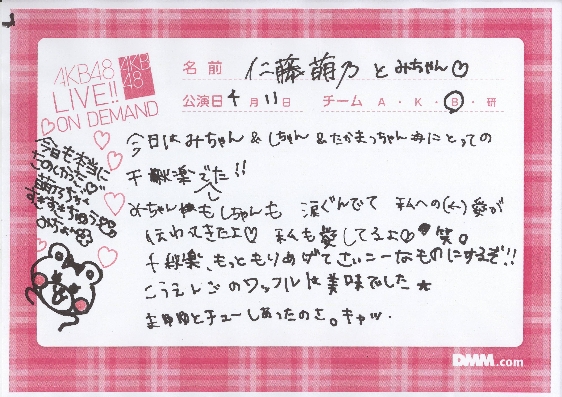 AKB48
LIVE!!
ON DEMAND
AKB
48
名前 仁藤萌乃とみちゃん♡
公演日 4月11日 チーム A・K・B・研
今日はみちゃん&しちゃん&たかまっちゃん にとっての
千秋楽でした!!
みちゃんもしちゃんも 涙ぐんでて 私への(んー)愛が
伝わってきたよ♡ 私も愛してるよ♡ 笑。
千秋楽、もっともりあげてさいこーなものにするぞ!!
こうえんごのワッフルは美味でした★
まゆゆとチューしあったのさ。キャッ.
今日も本当に
たのしかった
萌乃ちゃん
みちゃん
DMM.com